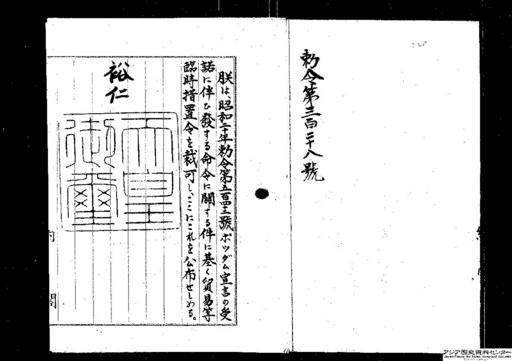 勅令第三百二十八號
朕は、昭和二十年勅令第五百四十二號ポツダム宣言の受
諾に伴ひ發する命令に關する件に基く貿易等
臨時措置令を裁可し、ここにこれを公布せしめる。
裕仁
天皇
御璽
内閣
アジア歴史資料センター
Japan Center for Asian Historical Records